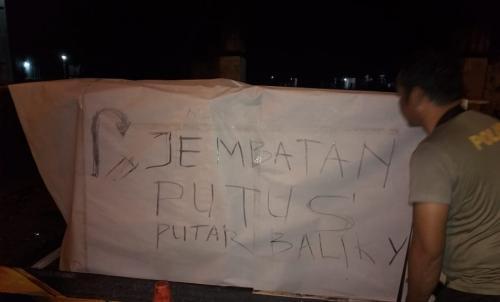 JEMBATAN
PUTUS
PUTAR BALIKY